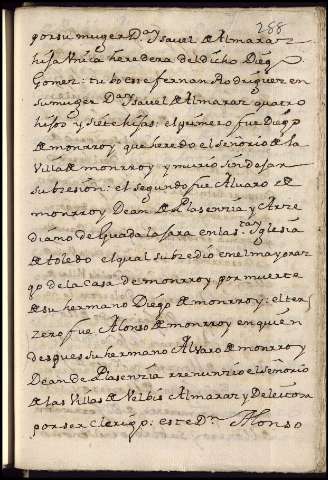 288
por su muger Dª Ysavel de Almaraz
hija Unica heredera del dicho Dieg
Gomez: tubo este fernan Rodriguez en
su muger Dª Ysavel de Almaraz quatro
hijos y siete hijas: el primero fue Diego
de monrroy que heredo el señorio de la
Villa de monrroy y murio sin dejar
subzesion: el segundo fue Alvaro de
monrroy Dean de Plasenzia y Arze
diano de Guadalajara en la sta Yglesia
de toledo el qual subzedio en el mayoraz
go de la Casa de monrroy por muerte
de su hermano Diego de monrroy: el ter
zero fue Alonso de monrroy en quien
despues su hermano Alvaro de monrroy
Dean de Plasenzia rrenunzio el señorio
de las Villas de Velbis Almaraz y Deleitosa
por ser clerigo: este Dn Alonso